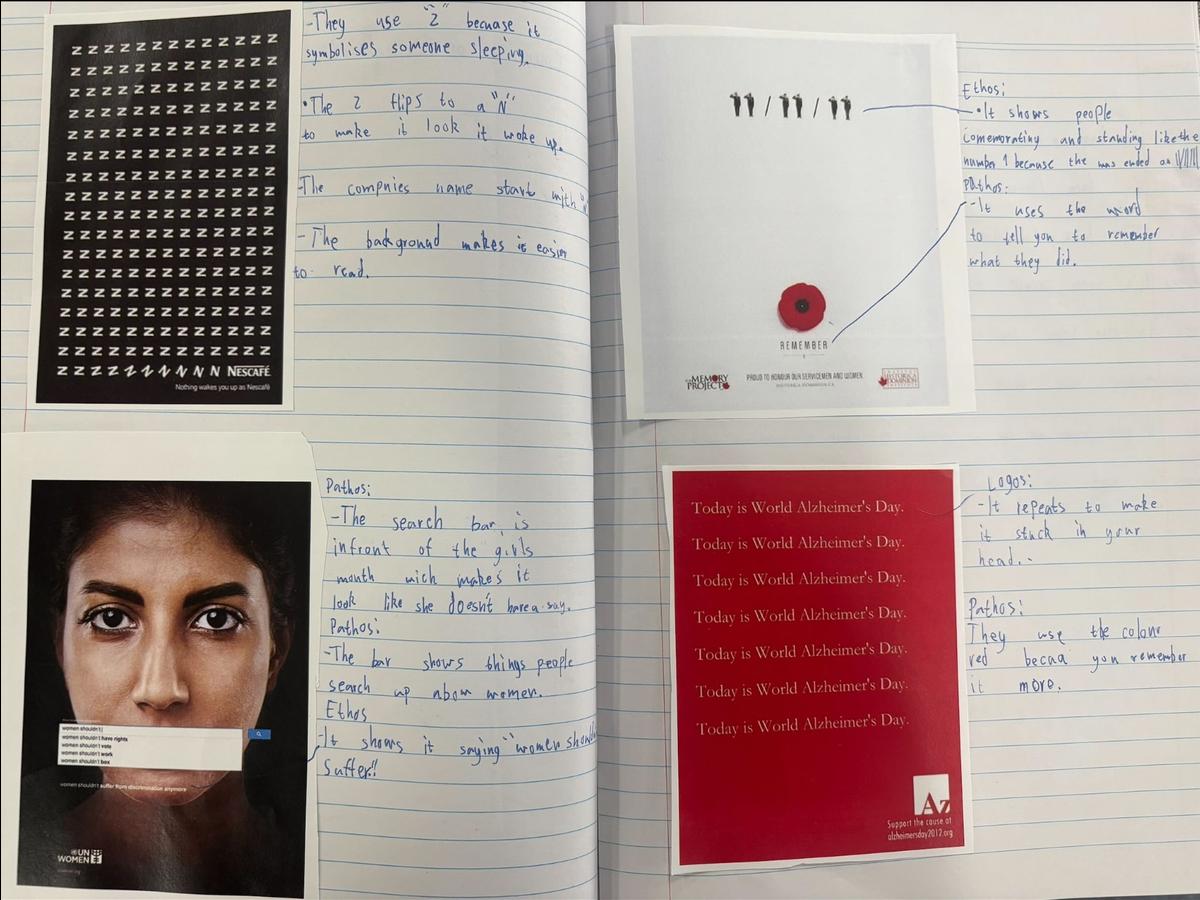 Z Z Z Z Z Z Z Z Z Z Z Z Z
Z Z Z Z Z Z Z Z Z Z Z Z Z
Z Z Z Z Z Z Z Z Z Z Z Z Z
Z Z Z Z Z Z Z Z Z Z Z Z Z
Z Z Z Z Z Z Z Z Z Z Z Z Z
Z Z Z Z Z Z Z Z Z Z Z Z Z
Z Z Z Z Z Z Z Z Z Z Z Z Z
Z Z Z Z Z Z Z Z Z Z Z Z Z
Z Z Z Z Z Z Z Z Z Z Z Z Z
Z Z Z Z Z Z Z Z Z Z Z Z Z
Z Z Z Z Z Z Z Z Z Z Z Z Z
Z Z Z Z Z Z Z Z Z Z Z Z Z
Z Z Z Z Z Z Z Z Z Z Z Z Z
Z Z Z Z Z Z Z Z Z Z Z Z Z
Z Z Z Z Z Z Z Z Z Z Z Z Z
Z Z Z Z Z Z Z Z N N N NESCAFÉ
Nothing wakes you up as Nescafé
-They use "Z" becuase it
symbolises someone sleeping.
•The Z flips to a "N"
to make it look it woke up.
-The compnies name start with
- The background makes it easier
to read.
women shouldn't
women shouldn't have rights
women shouldn't vote
women shouldn't work
women shouldn't box
women shouldn't suffer from discrimination anymore
UN
WOMEN
Pathos:
-The search bar is
infront of the girls
mouth wich makes it
look like she doesn't have a say.
Pathos:
-The bar shows things people
search up about women.
Ethos
-It shows it saying "women should
Suffer!!
/ /
REMEMBER
THE MEMORY
PROJECT
PROUD TO HONOUR OUR SERVICEMEN AND WOMEN.
HISTORICA-DOMINION.CA
HISTORICA
DOMINION
Ethos:
•It shows people
comemoratiny and standing like the
number 1 because the was ended on
Pathos:
-It uses the word
to tell you to remember
what they did.
Today is World Alzheimer's Day.
Today is World Alzheimer's Day.
Today is World Alzheimer's Day.
Today is World Alzheimer's Day.
Today is World Alzheimer's Day.
Today is World Alzheimer's Day.
Today is World Alzheimer's Day.
Az
Support the cause at
alzheimersday2012.org
Logos:
-It repeats to make
it stuck in your
head..
Pathos:
They use the colour
red becua you remember
it more.